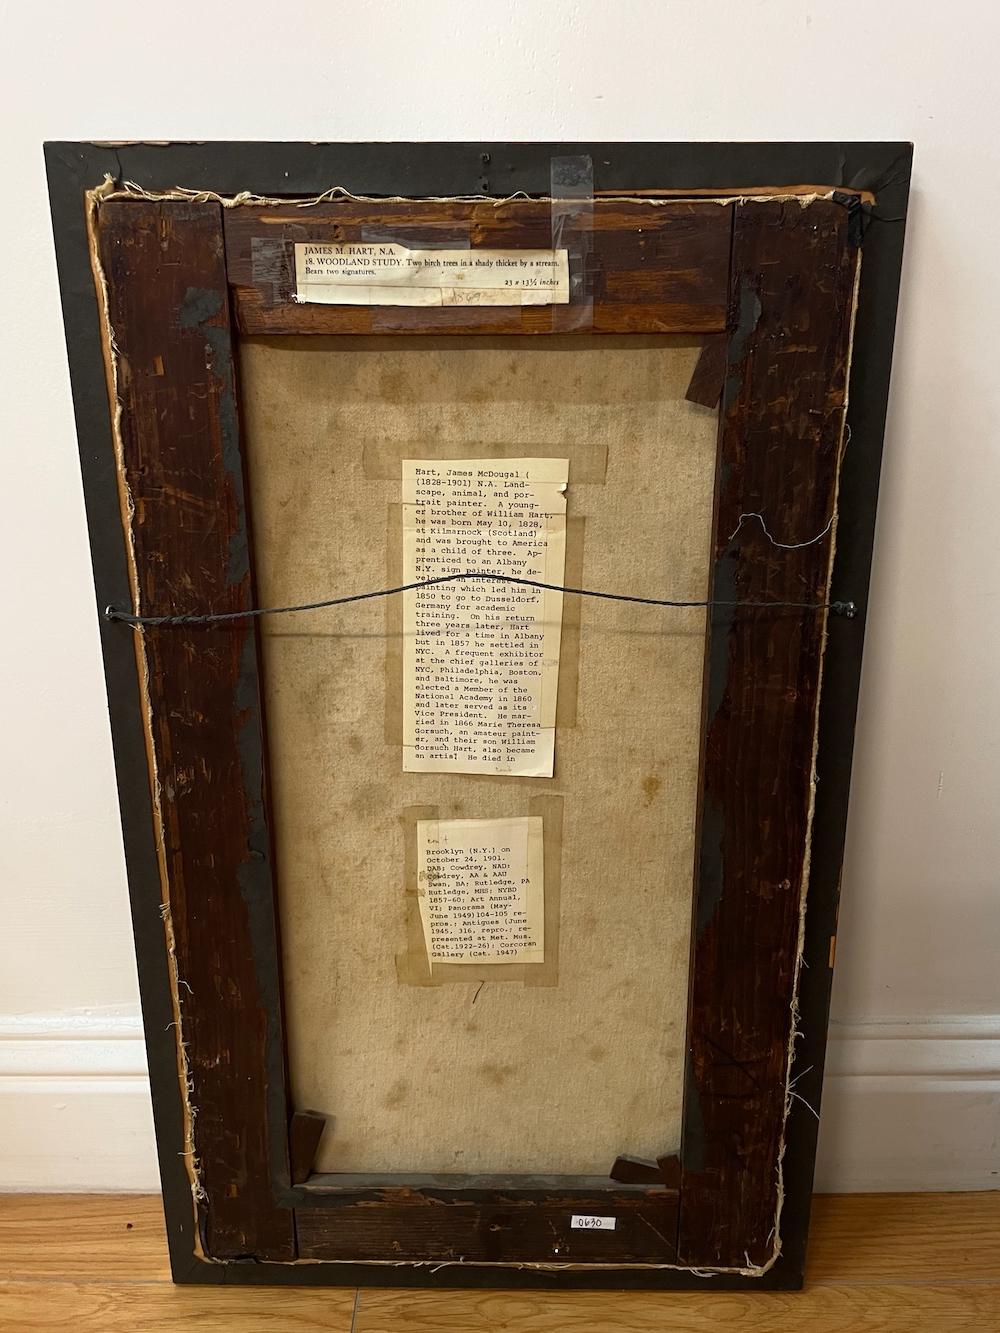 JAMES M. HART, N.A.
18. WOODLAND STUDY. Two birch trees in a shady thicket by a stream.
Bears two signatures.
23 x 13½ inches
1869
Hart, James McDougal (
(1828-1901) N.A. Land-
scape, animal, and por-
trait painter. A young-
er brother of William Hart,
he was born May 10, 1828,
at Kilmarnock (Scotland)
and was brought to America
as a child of three. Ap-
prenticed to an Albany
N.Y. sign painter, he de-
veloped an interest in
painting which led him in
1850 to go to Dusseldorf,
Germany for academic
training. On his return
three years later, Hart
lived for a time in Albany
but in 1857 he settled in
NYC. A frequent exhibitor
at the chief galleries of
NYC, Philadelphia, Boston,
and Baltimore, he was
elected a Member of the
National Academy in 1860
and later served as its
Vice President. He mar-
ried in 1866 Marie Theresa
Gorsuch, an amateur paint-
er, and their son William
Gorsuch Hart, also became
an artist He died in
cont
Brooklyn (N.Y.) on
October 24, 1901.
DAB; Cowdrey, NAD;
Cowdrey, AA & AAU
Swan, BA; Rutledge, PA
Rutledge, MHS; NYBD
1857-60; Art Annual,
VI; Panorama (May-
June 1949)104-105 re-
pros.; Antiques (June
1945, 316, repro.; re-
presented at Met. Mus.
(Cat.1922-26); Corcoran
Gallery (Cat. 1947)
0630